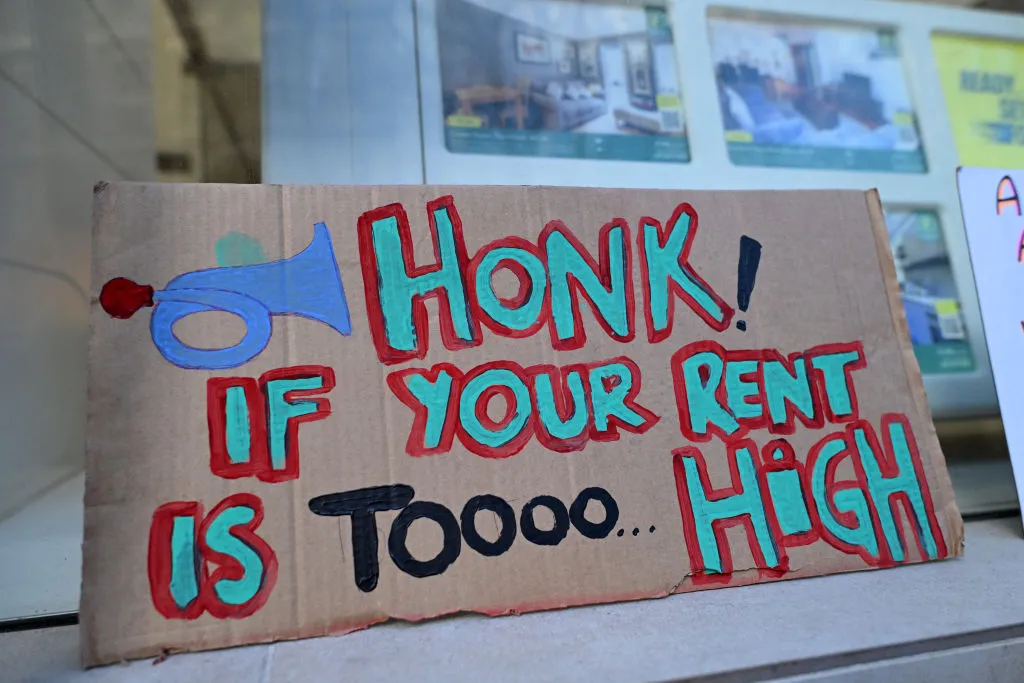 HONK!
IF YOUR RENT
IS TOOOO... HIGH
READY
A
A